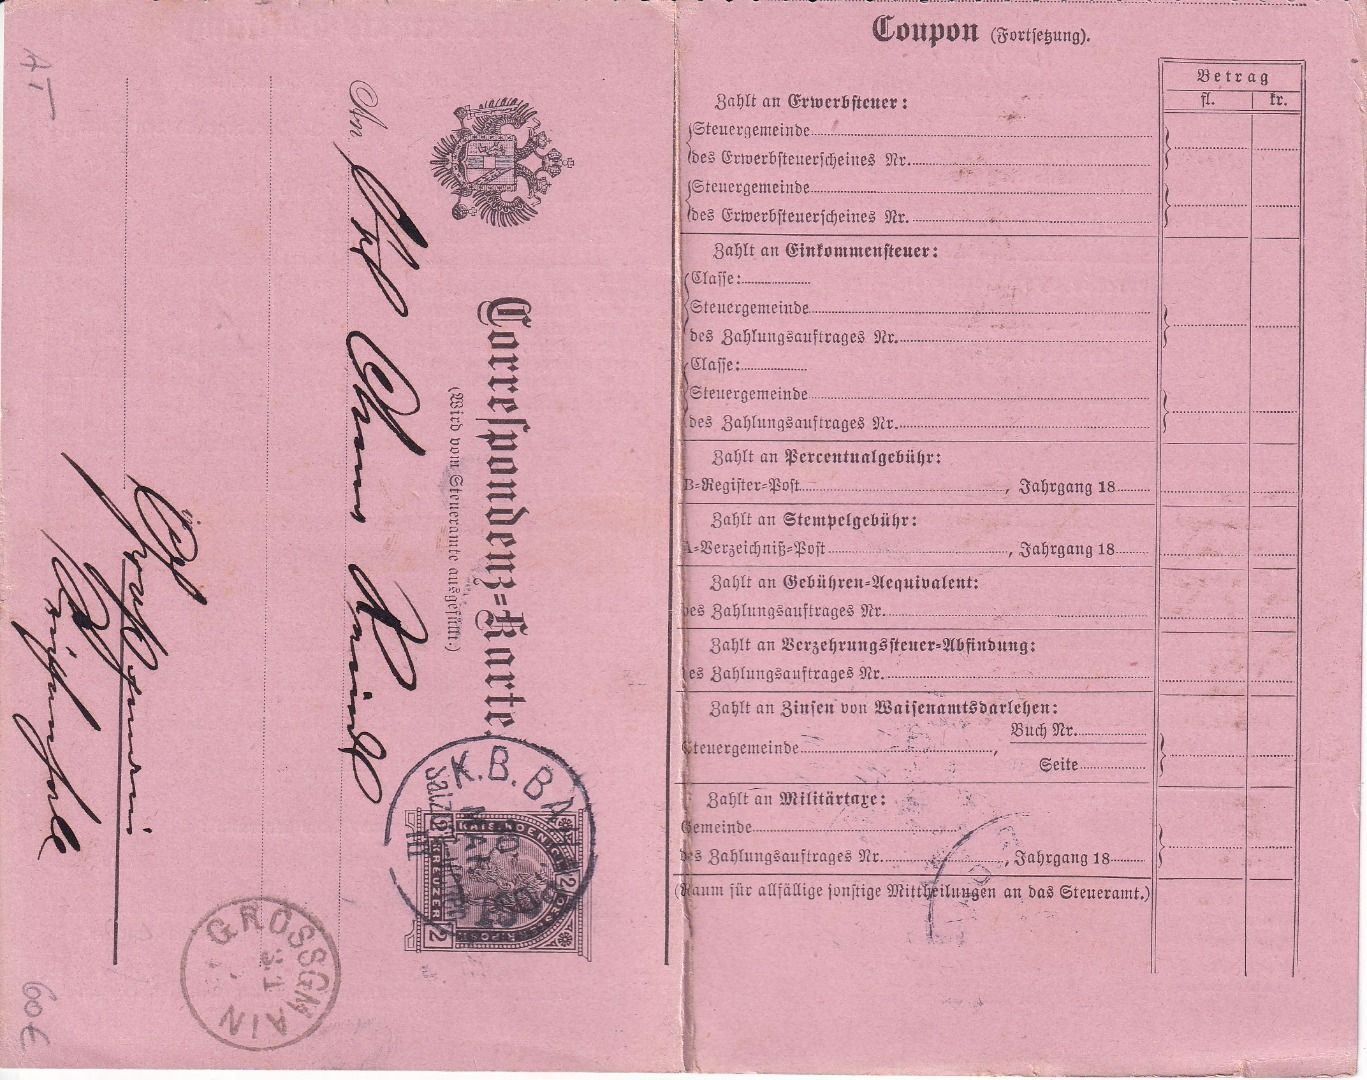 AT
Correspondenz-Karte.
(Wird vom Steueramte ausgefüllt.)
An
K. B. BA
2 KREUZER 2
GROSSGMAIN
31
60€
Coupon (Fortsetzung).
Betrag
fl. kr.
Zahlt an Erwerbsteuer:
Steuergemeinde
des Erwerbsteuerscheines Nr.
Steuergemeinde
des Erwerbsteuerscheines Nr.
Zahlt an Einkommensteuer:
Classe:
Steuergemeinde
des Zahlungsauftrages Nr.
Classe:
Steuergemeinde
des Zahlungsauftrages Nr.
Zahlt an Percentualgebühr:
B-Register-Post , Jahrgang 18
Zahlt an Stempelgebühr:
A-Verzeichniß-Post , Jahrgang 18
Zahlt an Gebühren-Aequivalent:
des Zahlungsauftrages Nr.
Zahlt an Verzehrungssteuer-Abfindung:
des Zahlungsauftrages Nr.
Zahlt an Zinsen von Waisenamtsdarlehen:
Buch Nr.
Steuergemeinde ,
Seite
Zahlt an Militärtaxe:
Gemeinde
des Zahlungsauftrages Nr. , Jahrgang 18
(Raum für allfällige sonstige Mittheilungen an das Steueramt.)